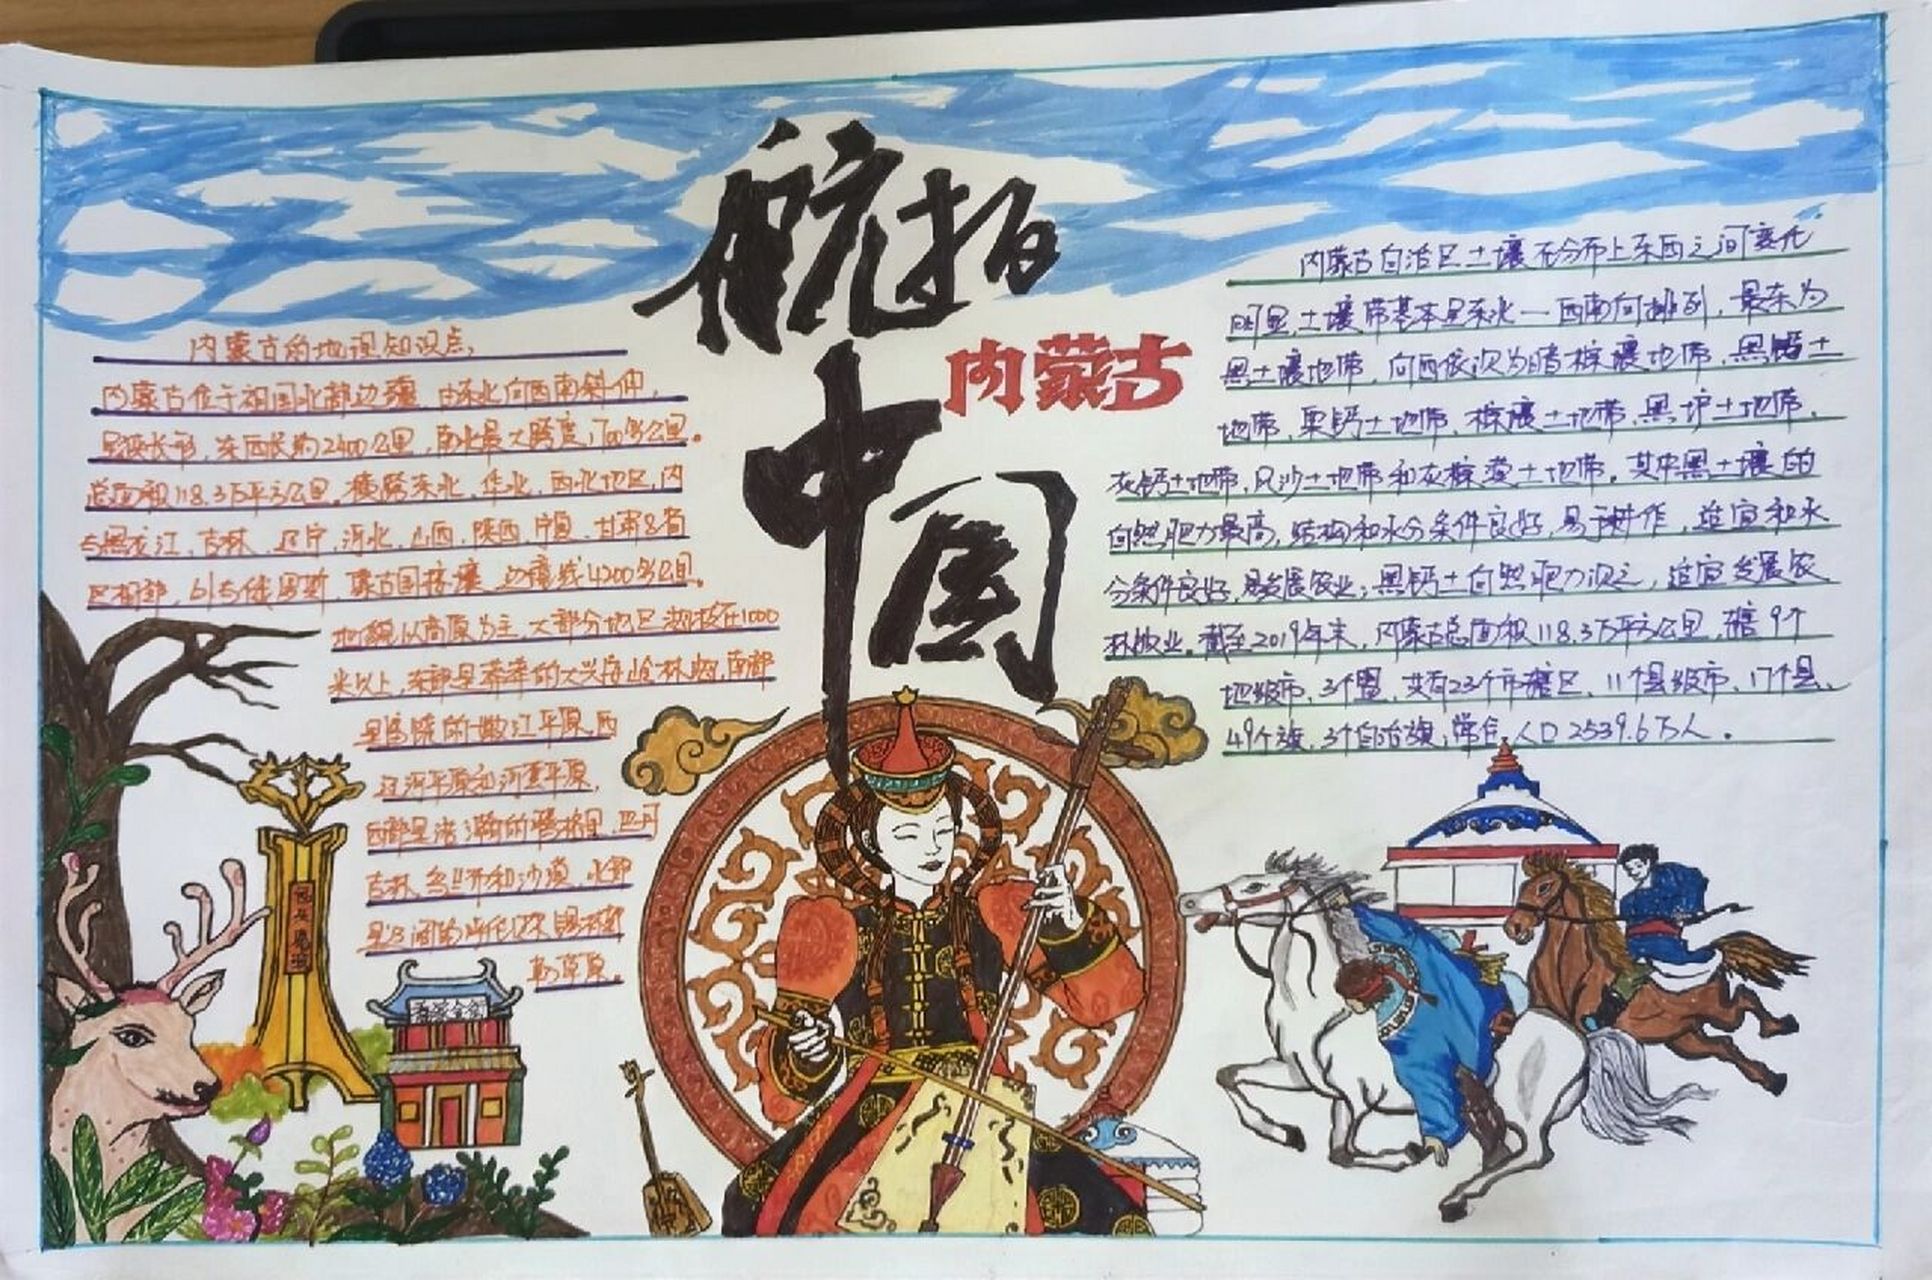 航拍
中国
内蒙古
内蒙古的地理知识点,
内蒙古位于祖国北部边疆,由东北向西南斜伸,
呈狭长形,东西长约2400公里,南北最大跨度1700多公里。
总面积118.3万平方公里。横跨东北、华北、西北地区,内
与黑龙江、吉林、辽宁、河北、山西、陕西、宁夏、甘肃8省
区相邻,外与俄罗斯、蒙古国接壤,边境线4200多公里。
地貌以高原为主,大部分地区海拔在1000
米以上,东部是莽莽的大兴安岭林海,南部
是富饶的嫩江平原、西
辽河平原和河套平原,
西部是浩瀚的腾格里、巴丹
吉林、乌兰布和沙漠,北部
是辽阔的呼伦贝尔、锡林郭
勒草原。
内蒙古自治区土壤在分布上东西之间变化
明显,土壤带基本呈东北—西南向排列,最东为
黑土壤地带,向西依次为暗棕壤地带、黑钙土
地带、栗钙土地带、棕壤土地带、黑垆土地带、
灰钙土地带、风沙土地带和灰棕漠土地带。其中黑土壤的
自然肥力最高,结构和水分条件良好,易于耕作,适宜和水
分条件良好,易发展农业;黑钙土自然肥力次之,适宜发展农
林牧业。截至2019年末,内蒙古总面积118.3万平方公里,辖9个
地级市、3个盟,共有23个市辖区、11个县级市、17个县、
49个旗、3个自治旗;常住人口2539.6万人。